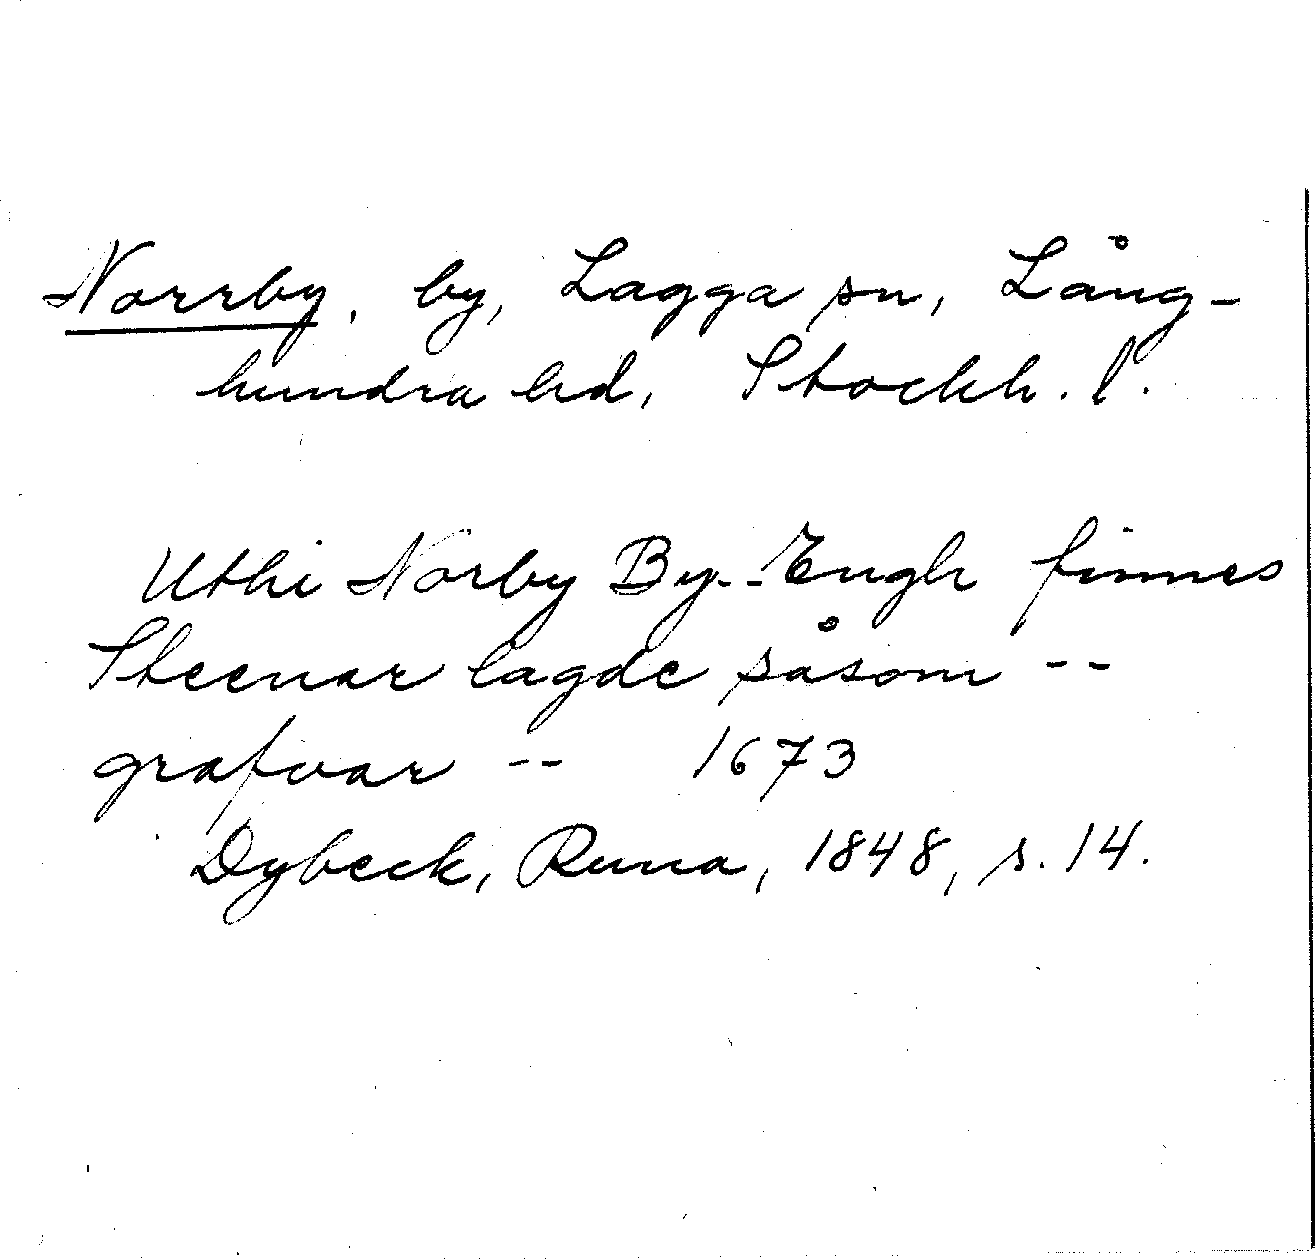 Norrby, by, Lagga sn, Lång-
hundra hd, Stockh. l.
Uthi Norby By-Engh finnes
Steenar lagde såsom --
grafvar -- 1673
Dybeck, Runa, 1848, s. 14.